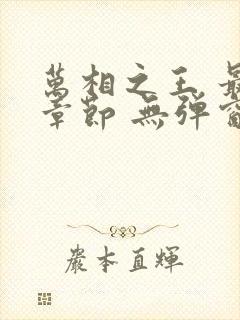 萬相之王 最
章節 無彈窗
嚴本直輝